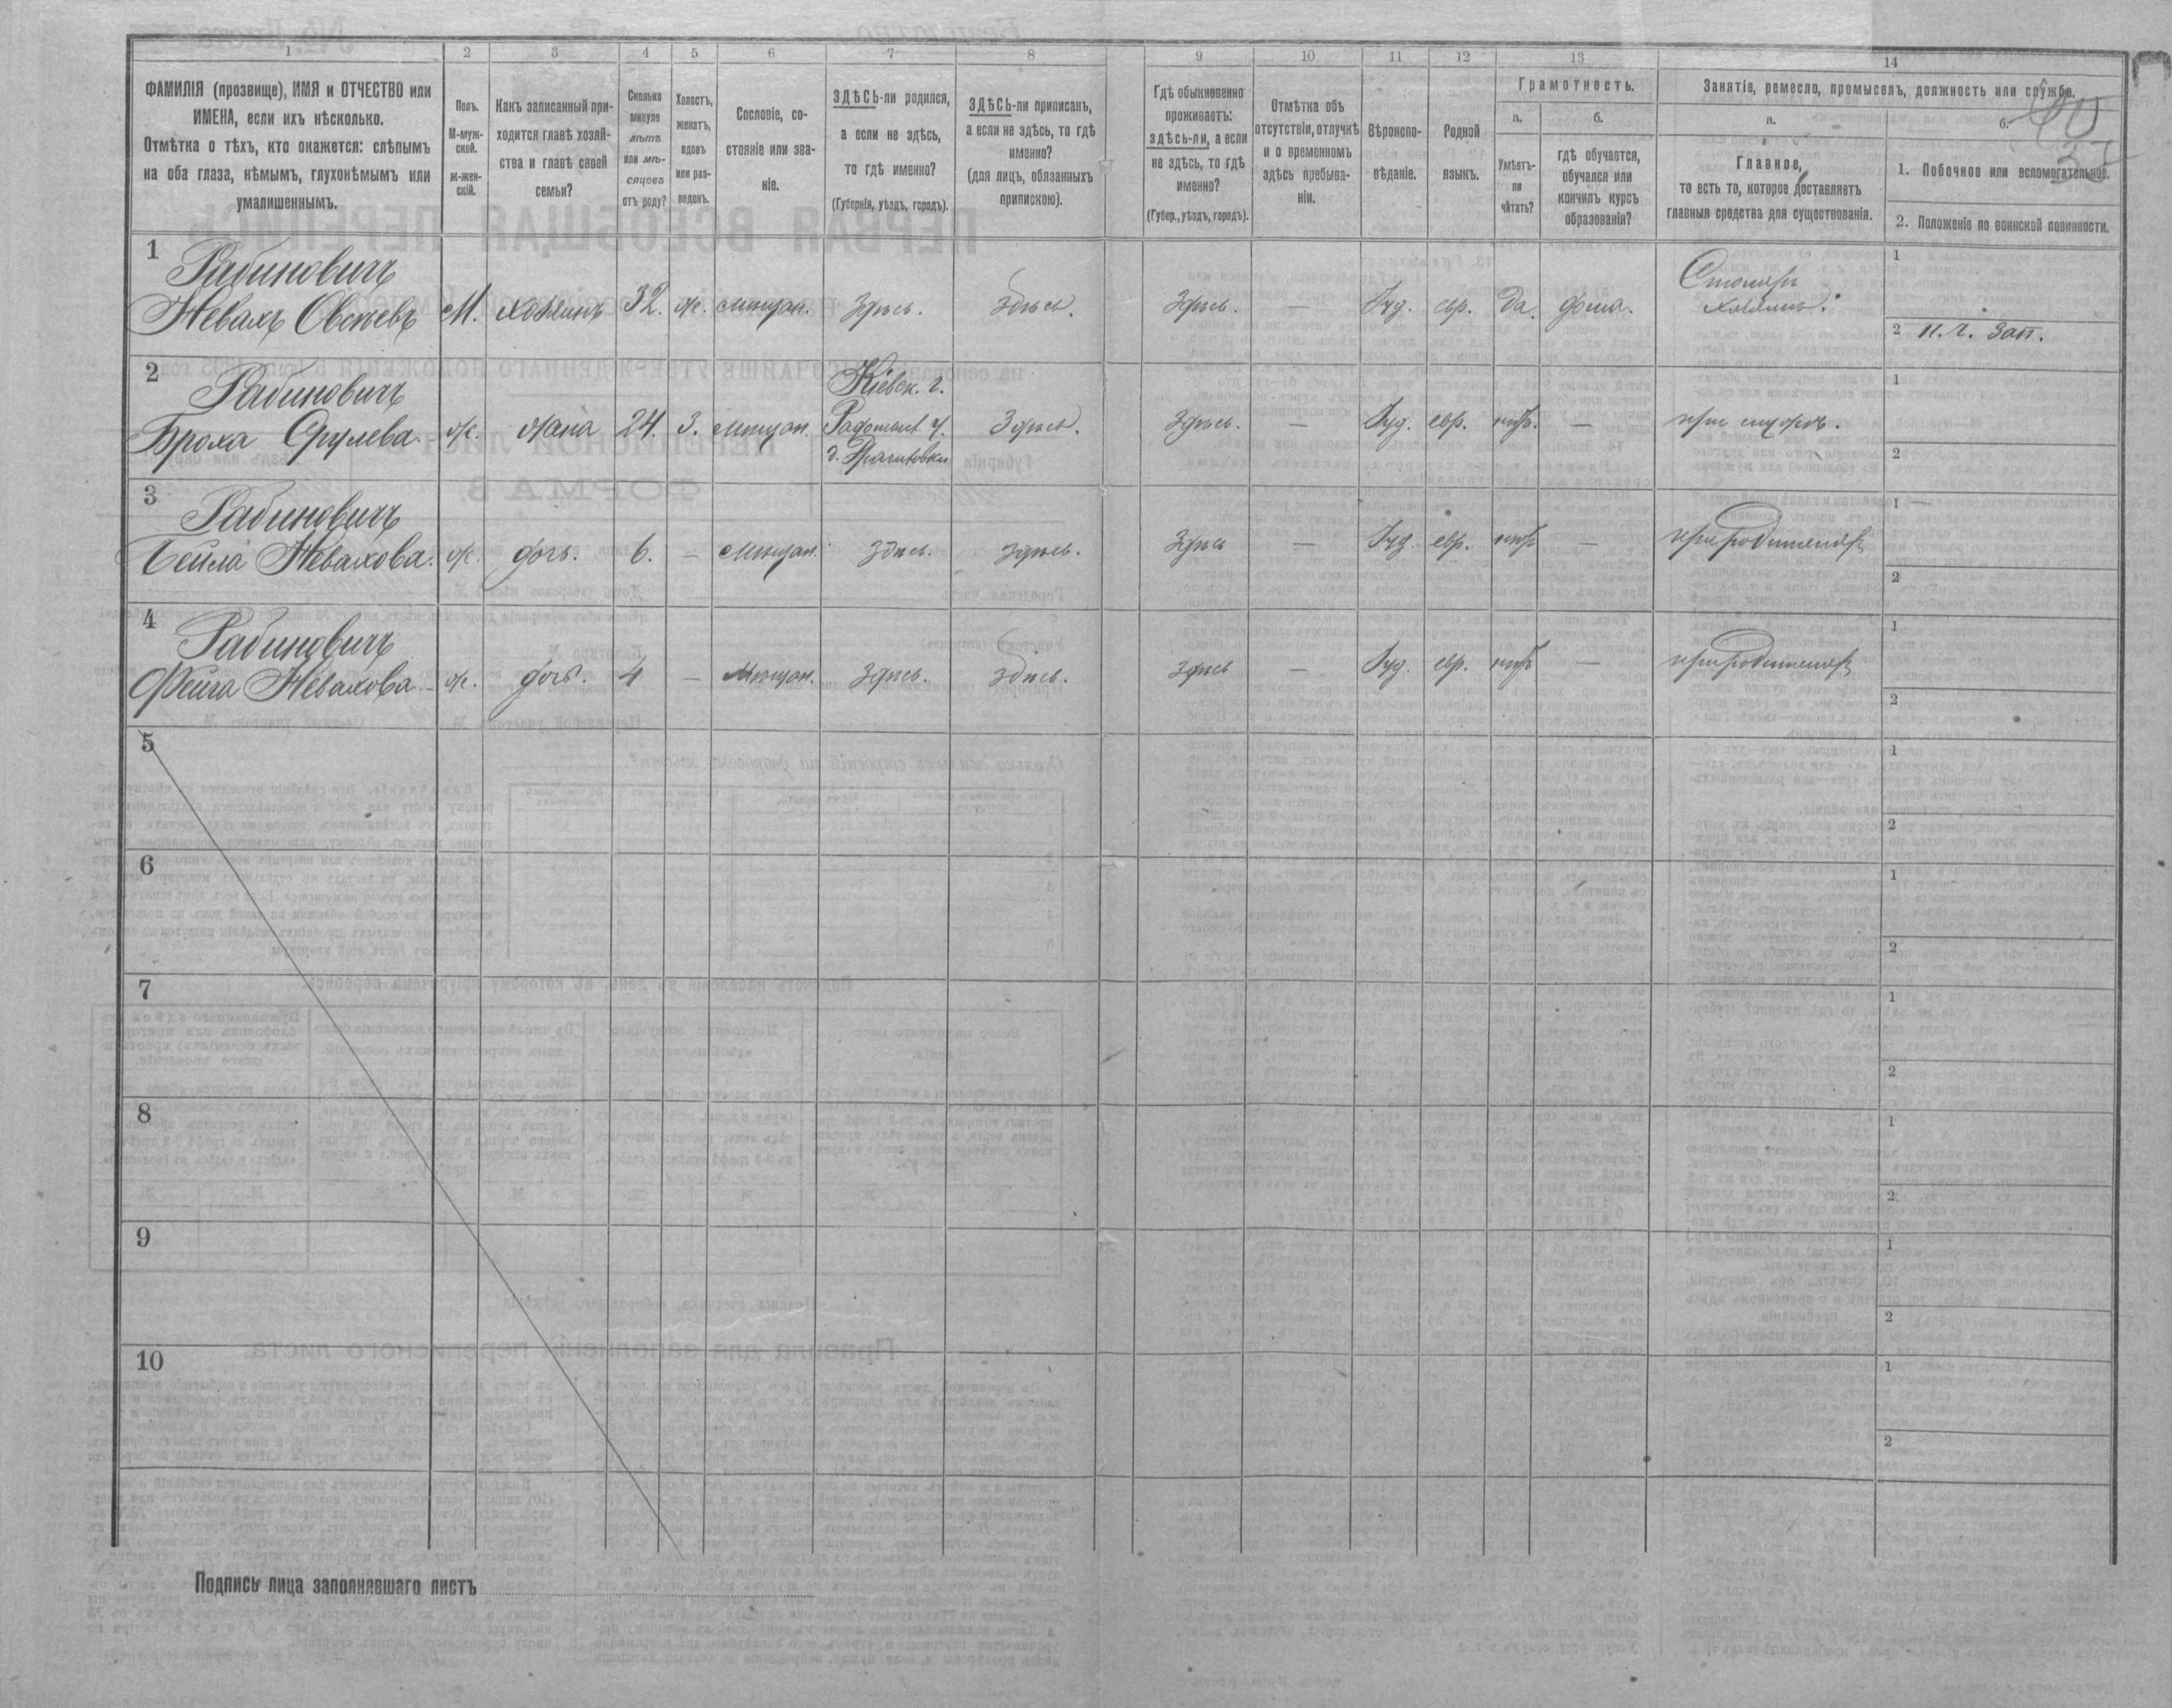 1
2
3
4
5
6
7
8
9
10
11
12
13
14
ФАМИЛІЯ (прозвище), ИМЯ и ОТЧЕСТВО или
ИМЕНА, если ихъ нѣсколько.
Отмѣтка о тѣхъ, кто окажется: слѣпымъ
на оба глаза, нѣмымъ, глухонѣмымъ или
умалишеннымъ.
Полъ.
М-муж-
ской.
ж-жен-
скій.
Какъ записанный при-
ходится главѣ хозяй-
ства и главѣ своей
семьи?
Сколько
минуло
лѣтъ
или мѣ-
сяцевъ
отъ роду?
Холостъ,
женатъ,
вдовъ
или раз-
веденъ.
Сословіе, со-
стояніе или зва-
ніе.
ЗДѢСЬ-ли родился,
а если не здѣсь,
то гдѣ именно?
(Губернія, уѣздъ, городъ).
ЗДѢСЬ-ли приписанъ,
а если не здѣсь, то гдѣ
именно?
(для лицъ, обязанныхъ
припискою).
Гдѣ обыкновенно
проживаетъ:
здѣсь-ли, а если
не здѣсь, то гдѣ
именно?
(Губер., уѣздъ, городъ).
Отмѣтка объ
отсутствіи, отлучкѣ
и о временномъ
здѣсь пребыва-
ніи.
Вѣроиспо-
вѣданіе.
Родной
языкъ.
Грамотность.
а.
Умѣетъ-
ли
читать?
б.
гдѣ обучается,
обучался или
кончилъ курсъ
образованія?
Занятіе, ремесло, промыселъ, должность или служба.
а.
Главное,
то есть то, которое доставляетъ
главныя средства для существованія.
б.
40
1. Побочное или вспомогательное.
2. Положеніе по воинской повинности.
1
Рабиновичъ
Невахъ Овсеевъ М. хозяинъ 32. ж. мѣщан. Здѣсь. здѣсь. Здѣсь. — Іуд. евр. Да. дома. Столяръ
хозяинъ.
1
2 н. ч. зап.
2
Рабиновичъ
Броха Срулева ж. жена 24. З. мѣщан. Кіевск. г.
Радомысл. у. Здѣсь. Здѣсь. — Іуд. евр. нѣтъ. — при мужѣ.
1
2
3
Рабиновичъ
Бейла Невахова. ж. дочь. 6. — мѣщан. здѣсь. здѣсь. Здѣсь — Іуд. евр. нѣтъ — при родителяхъ
1
2
4
Рабиновичъ
Фейга Невахова ж. дочь. 4 — мѣщан. Здѣсь. здѣсь. здѣсь — Іуд. евр. нѣтъ — при родителяхъ
1
2
5
1
2
6
1
2
7
1
2
8
1
2
9
1
2
10
1
2
Подпись лица заполнявшаго листъ